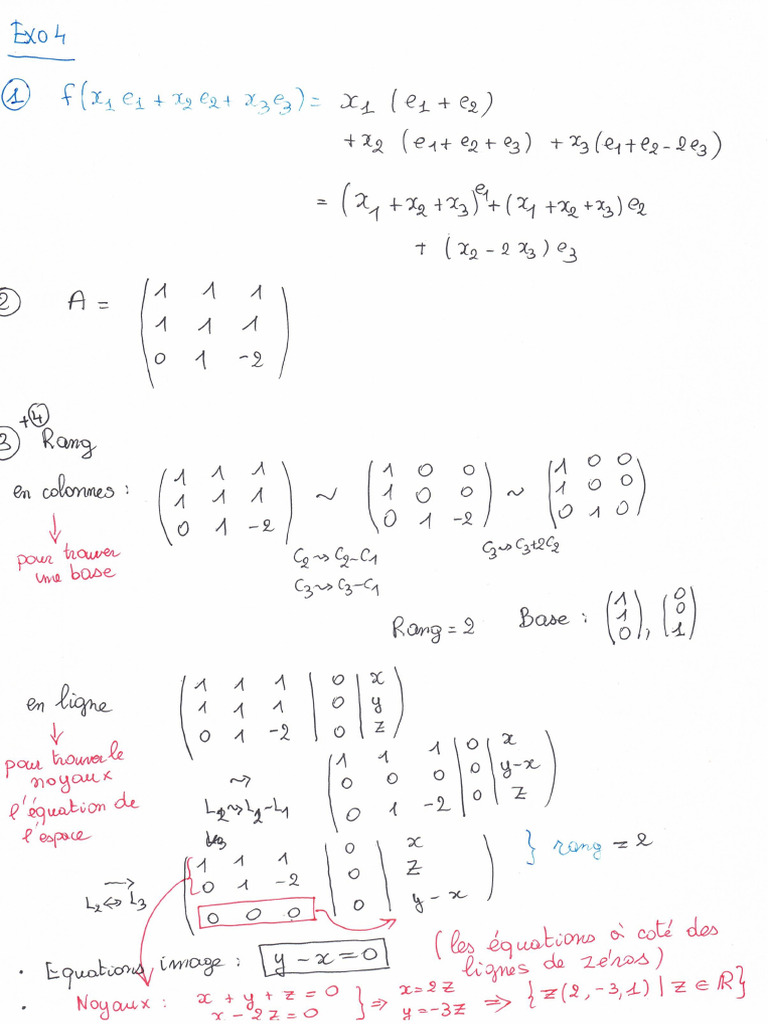 Exo 4
① f(x₁e₁ + x₂e₂ + x₃e₃) = x₁(e₁ + e₂)
+ x₂(e₁ + e₂ + e₃) + x₃(e₁ + e₂ - 2e₃)
= (x₁ + x₂ + x₃)e₁ + (x₁ + x₂ + x₃)e₂
+ (x₂ - 2x₃)e₃
② A = (1 1 1
1 1 1
0 1 -2)
③ + ④ Rang
en colonnes : (1 1 1 ~ (1 0 0 ~ (1 0 0
1 1 1) 1 0 0) 1 0 0)
0 1 -2 0 1 -2 0 1 0
↓
pour trouver
une base
C₂ ⇝ C₂ - C₁
C₃ ⇝ C₃ - C₁
C₃ ⇝ C₃ + 2C₂
Rang = 2 Base : (1 1 0), (0 0 1)
en ligne (1 1 1 | 0 | x
1 1 1 | 0 | y
0 1 -2 | 0 | z)
↓
pour trouver le
noyaux
l'équation de
l'espace
⇝
L₂ ⇝ L₂ - L₁
(1 1 1 | 0 | x
0 0 0 | 0 | y-x
0 1 -2 | 0 | z)
→
L₂ ↔ L₃
(1 1 1 | 0 | x
0 1 -2 | 0 | z
0 0 0 | 0 | y - x)
} rang = 2
· Equations image : y - x = 0
(les équations à coté des
lignes de zéros)
· Noyaux : x + y + z = 0
x - 2z = 0
} ⇒ x = 2z
y = -3z
⇒ {z(2, -3, 1) | z ∈ ℝ}